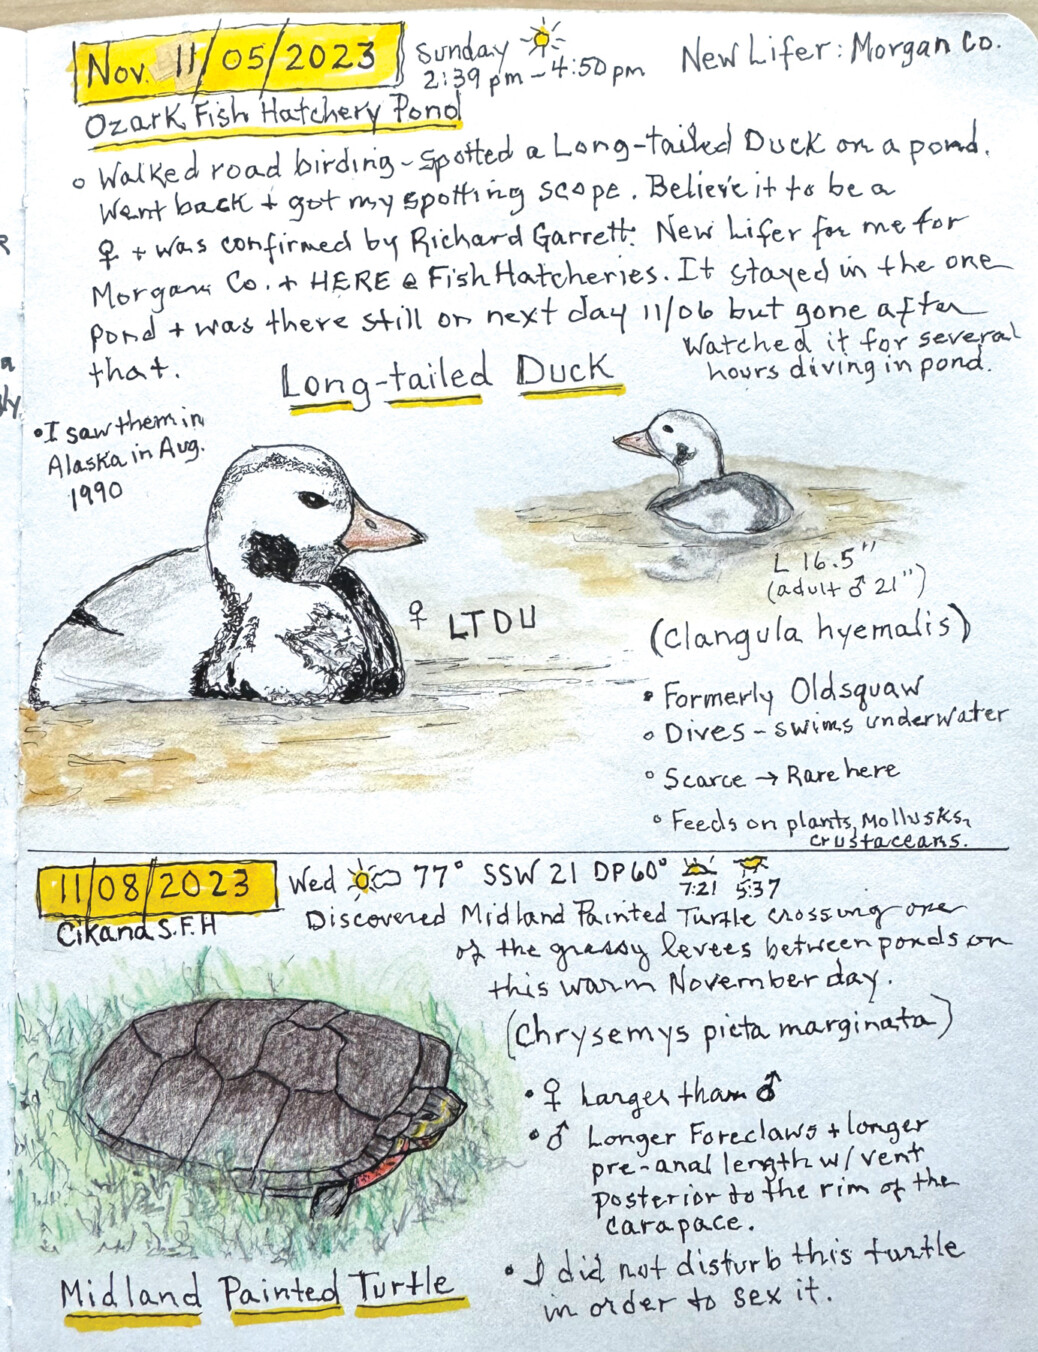 Nov. 11/05/2023
Sunday
2:39 pm - 4:50 pm
New Lifer: Morgan Co.
Ozark Fish Hatchery Pond
Walked road birding - spotted a Long-tailed Duck on a pond.
Went back + got my spotting scope. Believe it to be a
♀ + was confirmed by Richard Garrett. New Lifer for me for
Morgan Co. + HERE @ Fish Hatcheries. It stayed in the one
pond + was there still on next day 11/06 but gone after
that.
Watched it for several
hours diving in pond.
Long-tailed Duck
• I saw them in
Alaska in Aug.
1990
♀ LTDU
L 16.5"
(adult ♂ 21")
(Clangula hyemalis)
• Formerly Oldsquaw
• Dives - swims underwater
• Scarce → Rare here
• Feeds on plants, Mollusks,
crustaceans.
11/08/2023
Wed 77° SSW 21 DP 60°
7:21 5:37
Cikana S.F.H
Discovered Midland Painted Turtle crossing one
of the grassy levees between ponds on
this warm November day.
(Chrysemys picta marginata)
• ♀ Larger than ♂
• ♂ Longer Foreclaws + longer
pre-anal length w/ vent
posterior to the rim of the
carapace.
• I did not disturb this turtle
in order to sex it.
Midland Painted Turtle